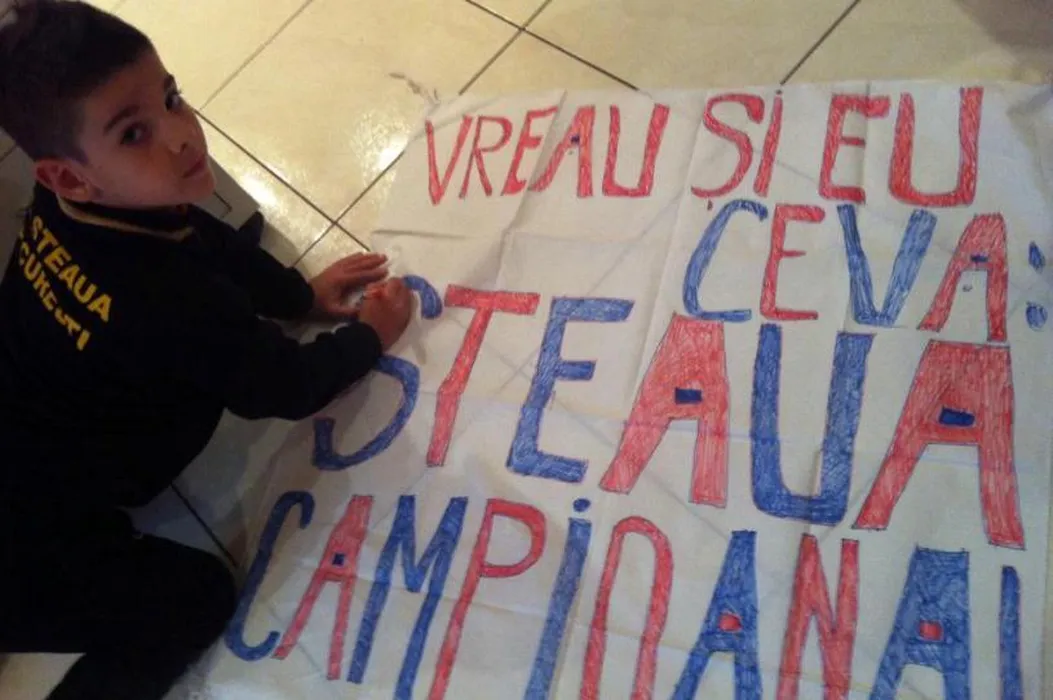 VREAU ȘI EU
CEVA:
STEAUA
CAMPIOANA!
STEAUA